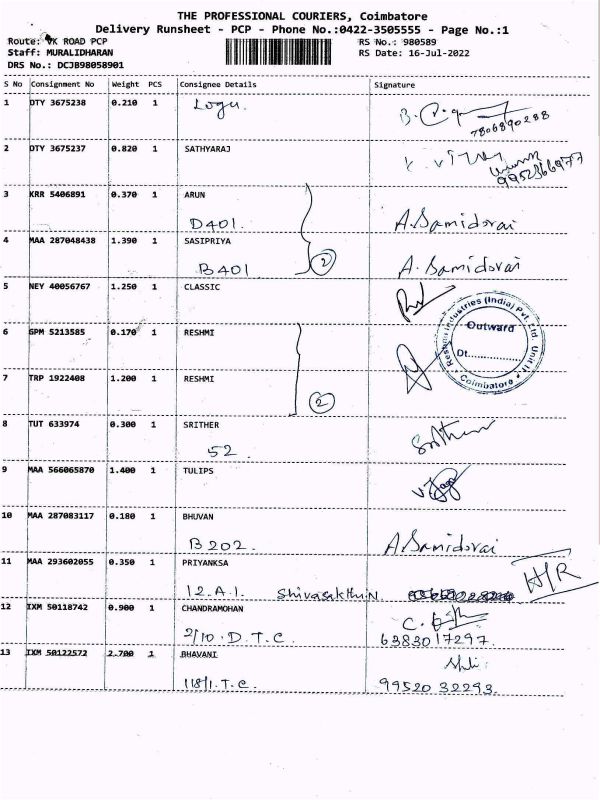 THE PROFESSIONAL COURIERS, Coimbatore
Delivery Runsheet - PCP - Phone No.:0422-3505555 - Page No.:1
Route: VK ROAD PCP RS No.: 980589
Staff: MURALIDHARAN RS Date: 16-Jul-2022
DRS No.: DCJB98058901
S No Consignment No Weight PCS Consignee Details Signature
1 DTY 3675238 0.210 1 Logu.
7806890288
2 DTY 3675237 0.820 1 SATHYARAJ
3 KRR 5406891 0.370 1 ARUN
D401. A. Samidorai
4 MAA 287048438 1.390 1 SASIPRIYA
B401. 2 A. Samidorai
5 NEY 40056767 1.250 1 CLASSIC
Reshmi Industries (India) Pvt. Ltd. Unit II
Outward
Dt..............
Coimbatore
6 GPM 5213585 0.170 1 RESHMI
7 TRP 1922408 1.200 1 RESHMI
2
8 TUT 633974 0.300 1 SRITHER
52 Srither
9 MAA 566065870 1.400 1 TULIPS
10 MAA 287083117 0.180 1 BHUVAN
B202. A. Samidorai
11 MAA 293602055 0.350 1 PRIYANKSA
12.A.1. Shivasakthi.N. H/R
12 IXM 50118742 0.900 1 CHANDRAMOHAN
2/10.D.T.C. 6383017297.
13 IXM 50122572 2.700 1 BHAVANI
118/1.T.C. 99520 32293.